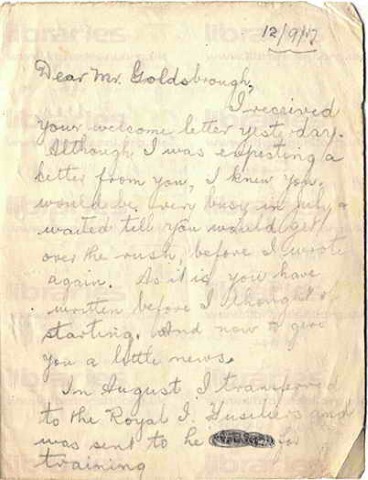 12/9/17
Dear Mr. Goldsbrough,
I received
your welcome letter yesterday.
Although I was expecting a
letter from you, I knew you
would be very busy in July &
waited till you would get
over the rush, before I wrote
again. As it is you have
written before I thought of
starting. And now to give
you a little news.
In August I transferred
to the Royal I. Fusiliers and
was sent to he for
training
libraries